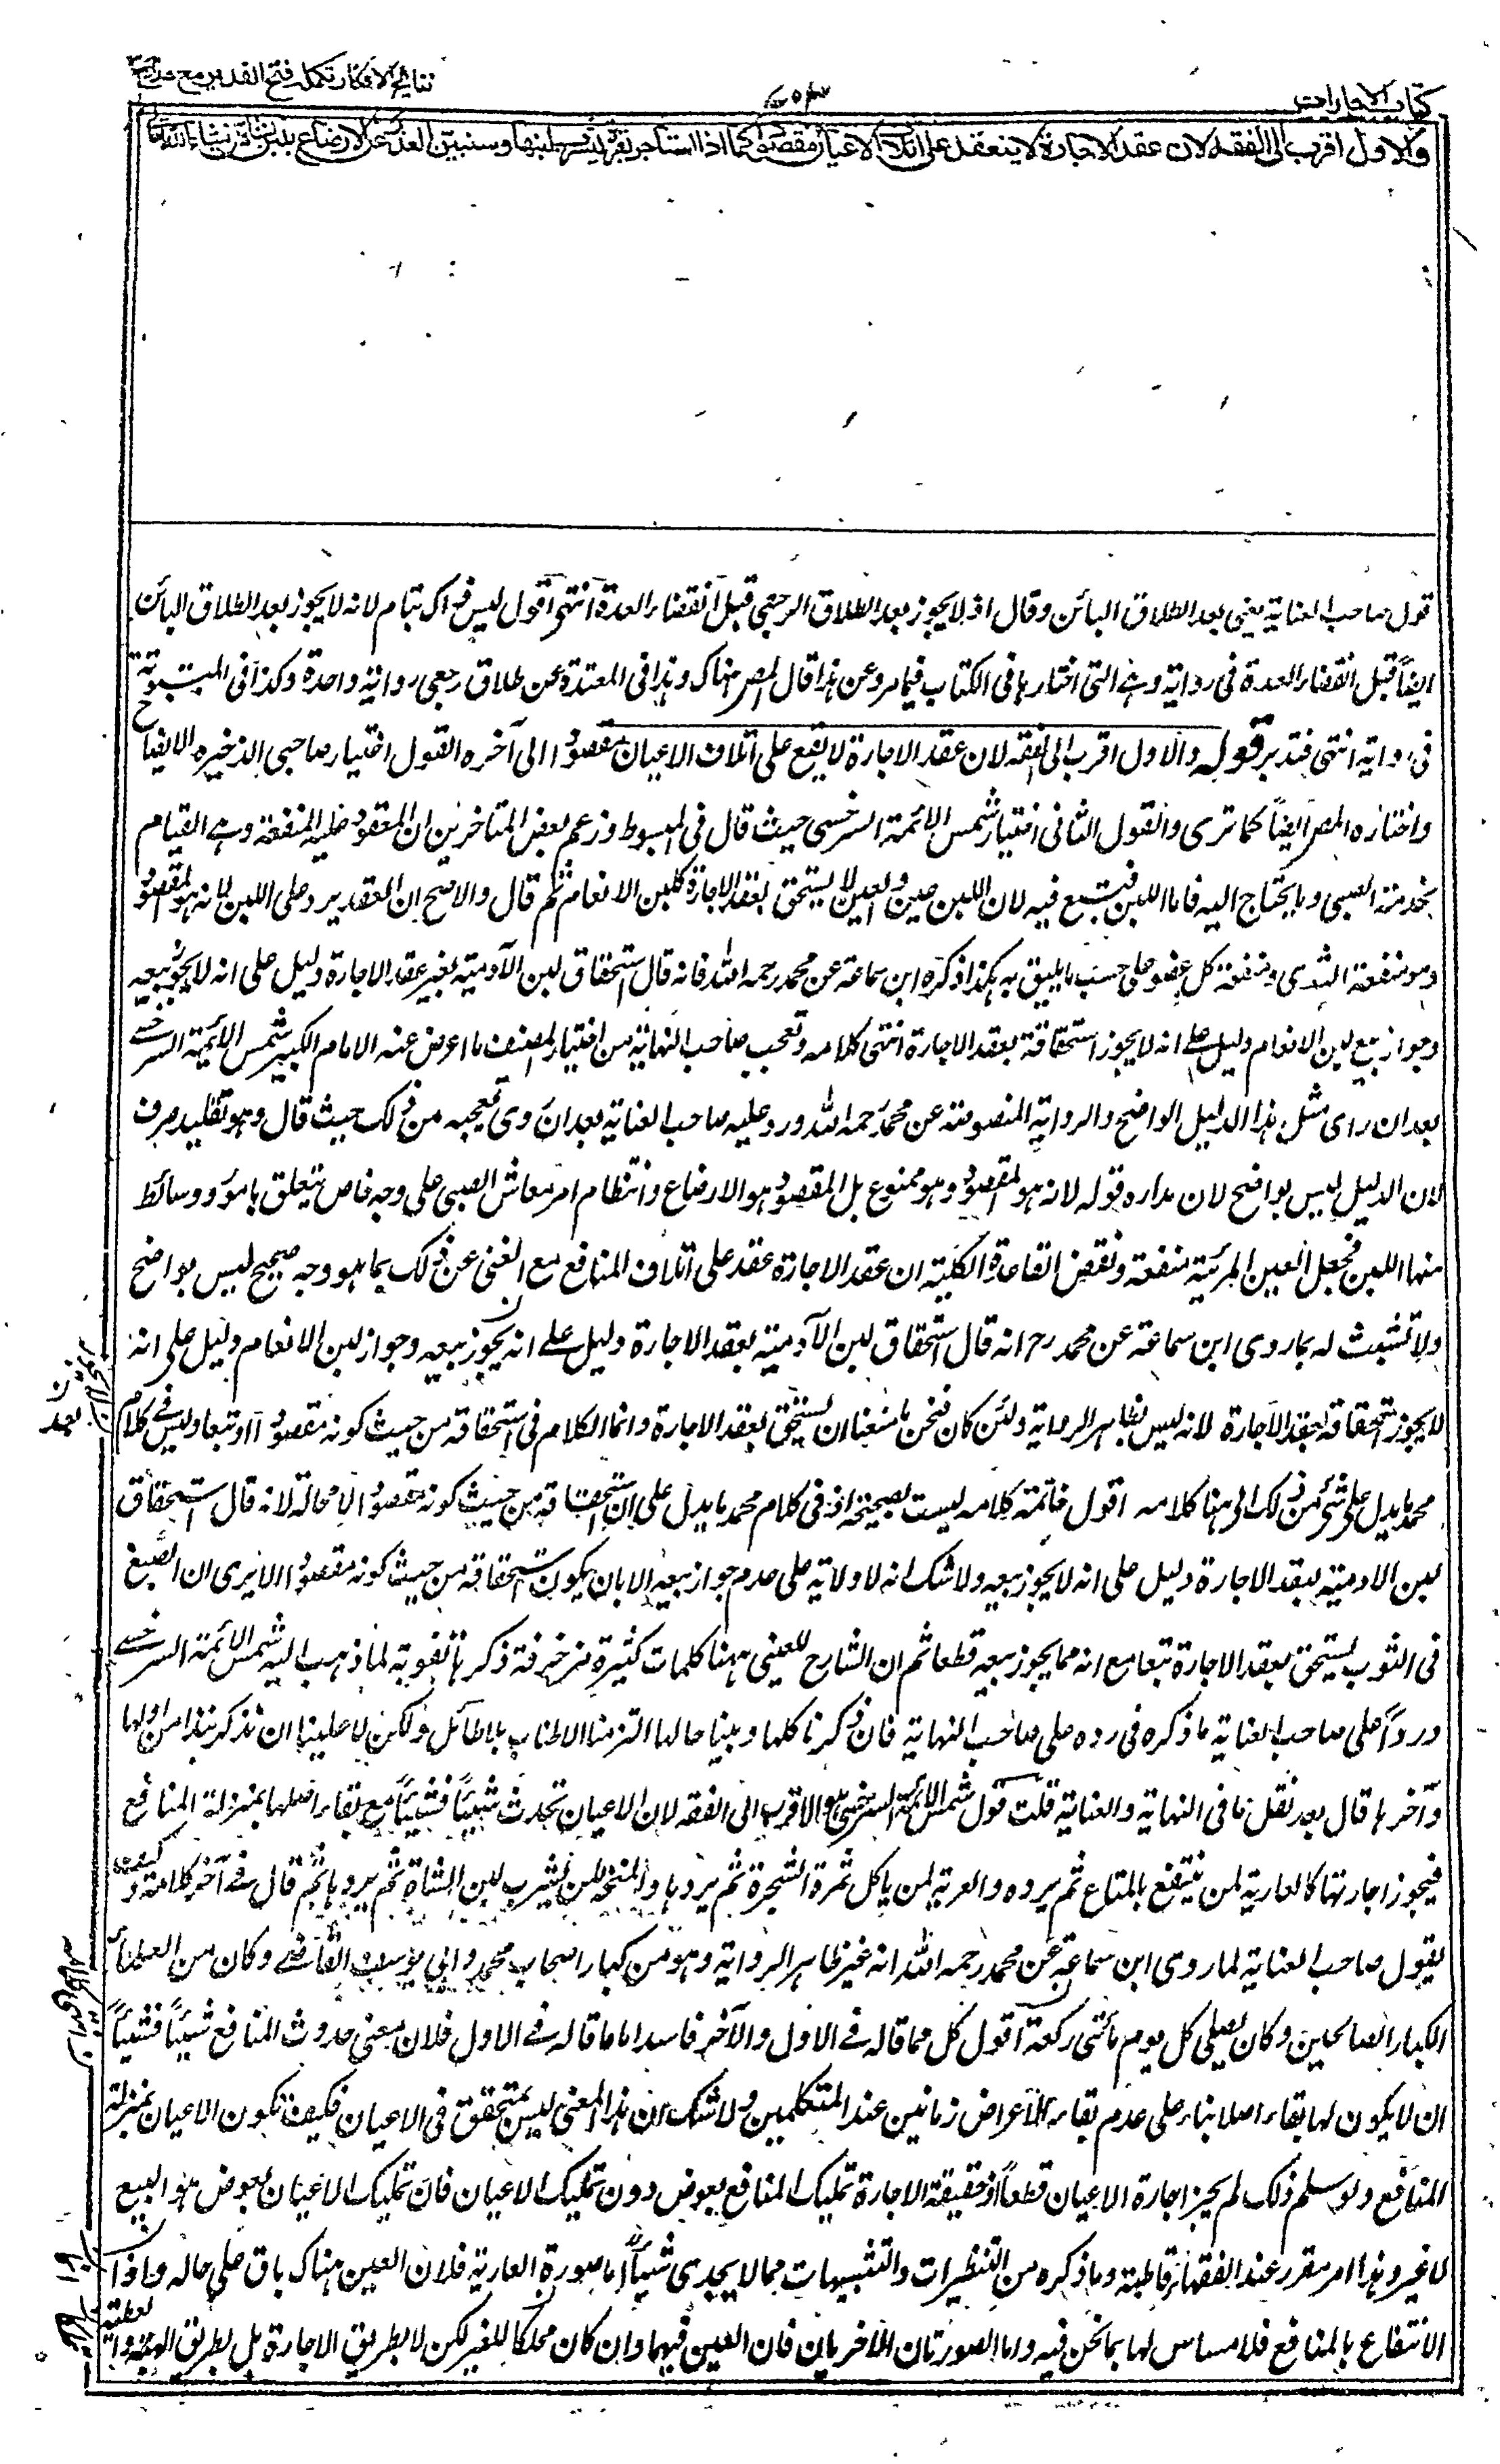 كتاب الاجارات
نتائج الافكار تكملة فتح القدير مع هداية
والاول اقرب الى الفقه لان عقد الاجارة لا ينعقد على اتلاف الاعيان مقصودا كما اذا استاجر بقرة ليشرب لبنها وسنبين العذر عن الارضاع بلبن شاة ان شاء الله تعالى
قول صاحب العناية يعنى بعد الطلاق البائن وقال اذ لا يجوز بعد الطلاق الرجعى قبل انقضاء العدة انتهى اقول ليس ذاك بتام لانه لا يجوز بعد الطلاق البائن
ايضاً قبل انقضاء العدة فى رواية وهى التى اختارها فى الكتاب فيما مر وعن هذا قال المصر هناك وهذا فى المعتدة عن طلاق رجعى رواية واحدة وكذا فى المبتوتة
فى رواية انتهى فتدبر قوله والاول اقرب الى الفقه لان عقد الاجارة لا يقع على اتلاف الاعيان مقصودا الى آخره القول اختيار صاحبى الذخيره والايضاح
واختاره المصر ايضاً كما ترى والقول الثانى اختيار شمس الائمة السرخسى حيث قال فى المبسوط وزعم بعض المتاخرين ان المعقود عليه المنفعة وهى القيام
بخدمة الصبى وما يحتاج اليه فاما اللبن فتبع فيه لان اللبن عين والعين لا يستحق بعقد الاجارة كلبن الانعام ثم قال والاصح ان العقد يرد على اللبن لانه هو المقصود
وهو منفعة الثدى ومنفعة كل عضو على حسب ما يليق به هكذا ذكره ابن سماعة عن محمد رحمه الله فانه قال استحقاق لبن الآدمية بغير عقد الاجارة دليل على انه لا يجوز بيعه
وجواز بيع لبن الانعام دليل على انه لا يجوز استحقاقه بعقد الاجارة انتهى كلامه وتعجب صاحب النهاية من اختيار المصنف ما اعرض عنه الامام الكبير شمس الائمة السرخسى
بعد ان راى مثل هذا الدليل الواضح والرواية المنصوصة عن محمد رحمه الله ورد عليه صاحب العناية بعد ان روى تعجبه من ذلك حيث قال وهو تقليد صرف
لان الدليل ليس بواضح لان مداره قوله لانه هو المقصود وهو ممنوع بل المقصود هو الارضاع وانتظام امر معاش الصبى على وجه خاص يتعلق بامور ووسائط
منها اللبن فجعل العين المرئية منفعة ونقض القاعدة الكلية ان عقد الاجارة عقد على اتلاف المنافع مع الغنى عن ذلك بما هو وجه صحيح ليس بواضح
ولا تشبث له بما روى ابن سماعة عن محمد رح انه قال استحقاق لبن الآدمية بعقد الاجارة دليل على انه يجوز بيعه وجواز لبن الانعام دليل على انه
لا يجوز استحقاقه بعقد الاجارة لانه ليس بظاهر الرواية ولئن كان فنحن ما منعنا ان يستحق بعقد الاجارة وانما الكلام فى استحقاقه من حيث كونه مقصودا او تبعا وليس فى كلام
محمد ما يدل على شئ من ذلك الى هنا كلامه اقول خاتمة كلامه ليست بصحيحة اذ فى كلام محمد ما يدل على ان استحقاقه من حيث كونه مقصودا لا محالة لانه قال استحقاق
لبن الادمية بعقد الاجارة دليل على انه لا يجوز بيعه ولا شك انه لا دلالة على عدم جواز بيعه الا بان يكون استحقاقه من حيث كونه مقصودا الا يرى ان الصبغ
فى الثوب يستحق بعقد الاجارة تبعا مع انه مما يجوز بيعه قطعا ثم ان الشارح العينى ههنا كلمات كثيرة مزخرفة ذكرها تقوية لما ذهب اليه شمس الائمة السرخسى
ورداً على صاحب العناية ما ذكره فى رده على صاحب النهاية فان ذكرنا كلها وبينا حالها التزمنا الاطناب بلا طائل ولكن لا علينا ان نذكر نبذا من اولها
وآخرها قال بعد نقل ما فى النهاية والعناية قلت قول شمس الائمة السرخسى هو الاقرب الى الفقه لان الاعيان تحدث شيئاً فشيئاً مع بقاء اصلها بمنزلة المنافع
فيجوز اجارتها كالعارية لمن ينتفع بالمتاع ثم يرده والعرية لمن ياكل ثمرة الشجرة ثم يردها والمنحة لمن يشرب لبن الشاة ثم يردها ثم قال فى آخر كلامه وكيف
يقول صاحب العناية لما روى ابن سماعة عن محمد رحمه الله انه غير ظاهر الرواية وهو من كبار اصحاب محمد وابى يوسف القاضى وكان من العلماء
الكبار الصالحين وكان يصلى كل يوم مأتى ركعة اقول كل مما قاله فى الاول والآخر فاسد اما ما قاله فى الاول فلان معنى حدوث المنافع شيئاً فشيئاً
ان لا يكون لها بقاء اصلا بناء على عدم بقاء الاعراض زمانين عند المتكلمين ولا شك ان هذا المعنى ليس بمتحقق فى الاعيان فكيف تكون الاعيان بمنزلة
المنافع ولو سلم ذلك لم يجز اجارة الاعيان قطعاً اذ حقيقة الاجارة تمليك المنافع بعوض دون تمليك الاعيان فان تمليك الاعيان بعوض هو البيع
لا غير وهذا امر مقرر عند الفقهاء قاطبة وما ذكره من التنظيرات والتشبيهات مما لا يجدى شيئاً اما صورة العارية فلان العين هناك باق على حاله وانما
الانتفاع بالمنافع فلا مساس لها بما نحن فيه واما الصورتان الاخريان فان العين فيهما وان كان مملكا للغير لكن لا بطريق الاجارة بل بطريق الهبة و